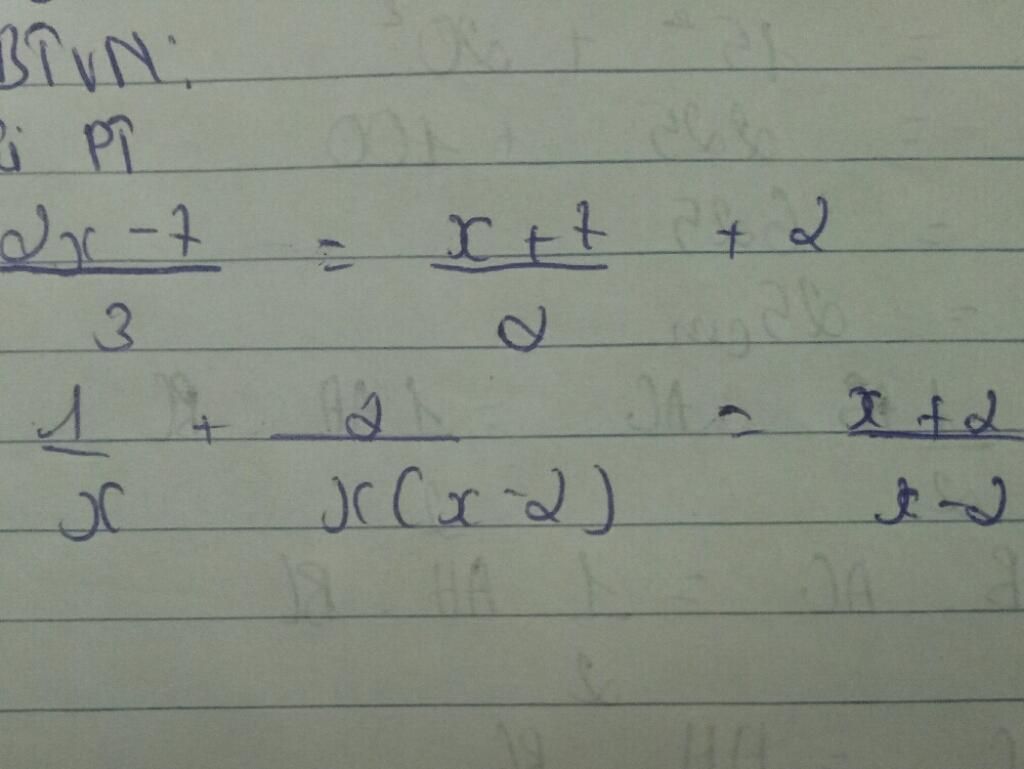 BTVN:
i PT
2x-7 = x+7 + 2
3 2
1 + 2 = x+2
x x(x-2) x-2